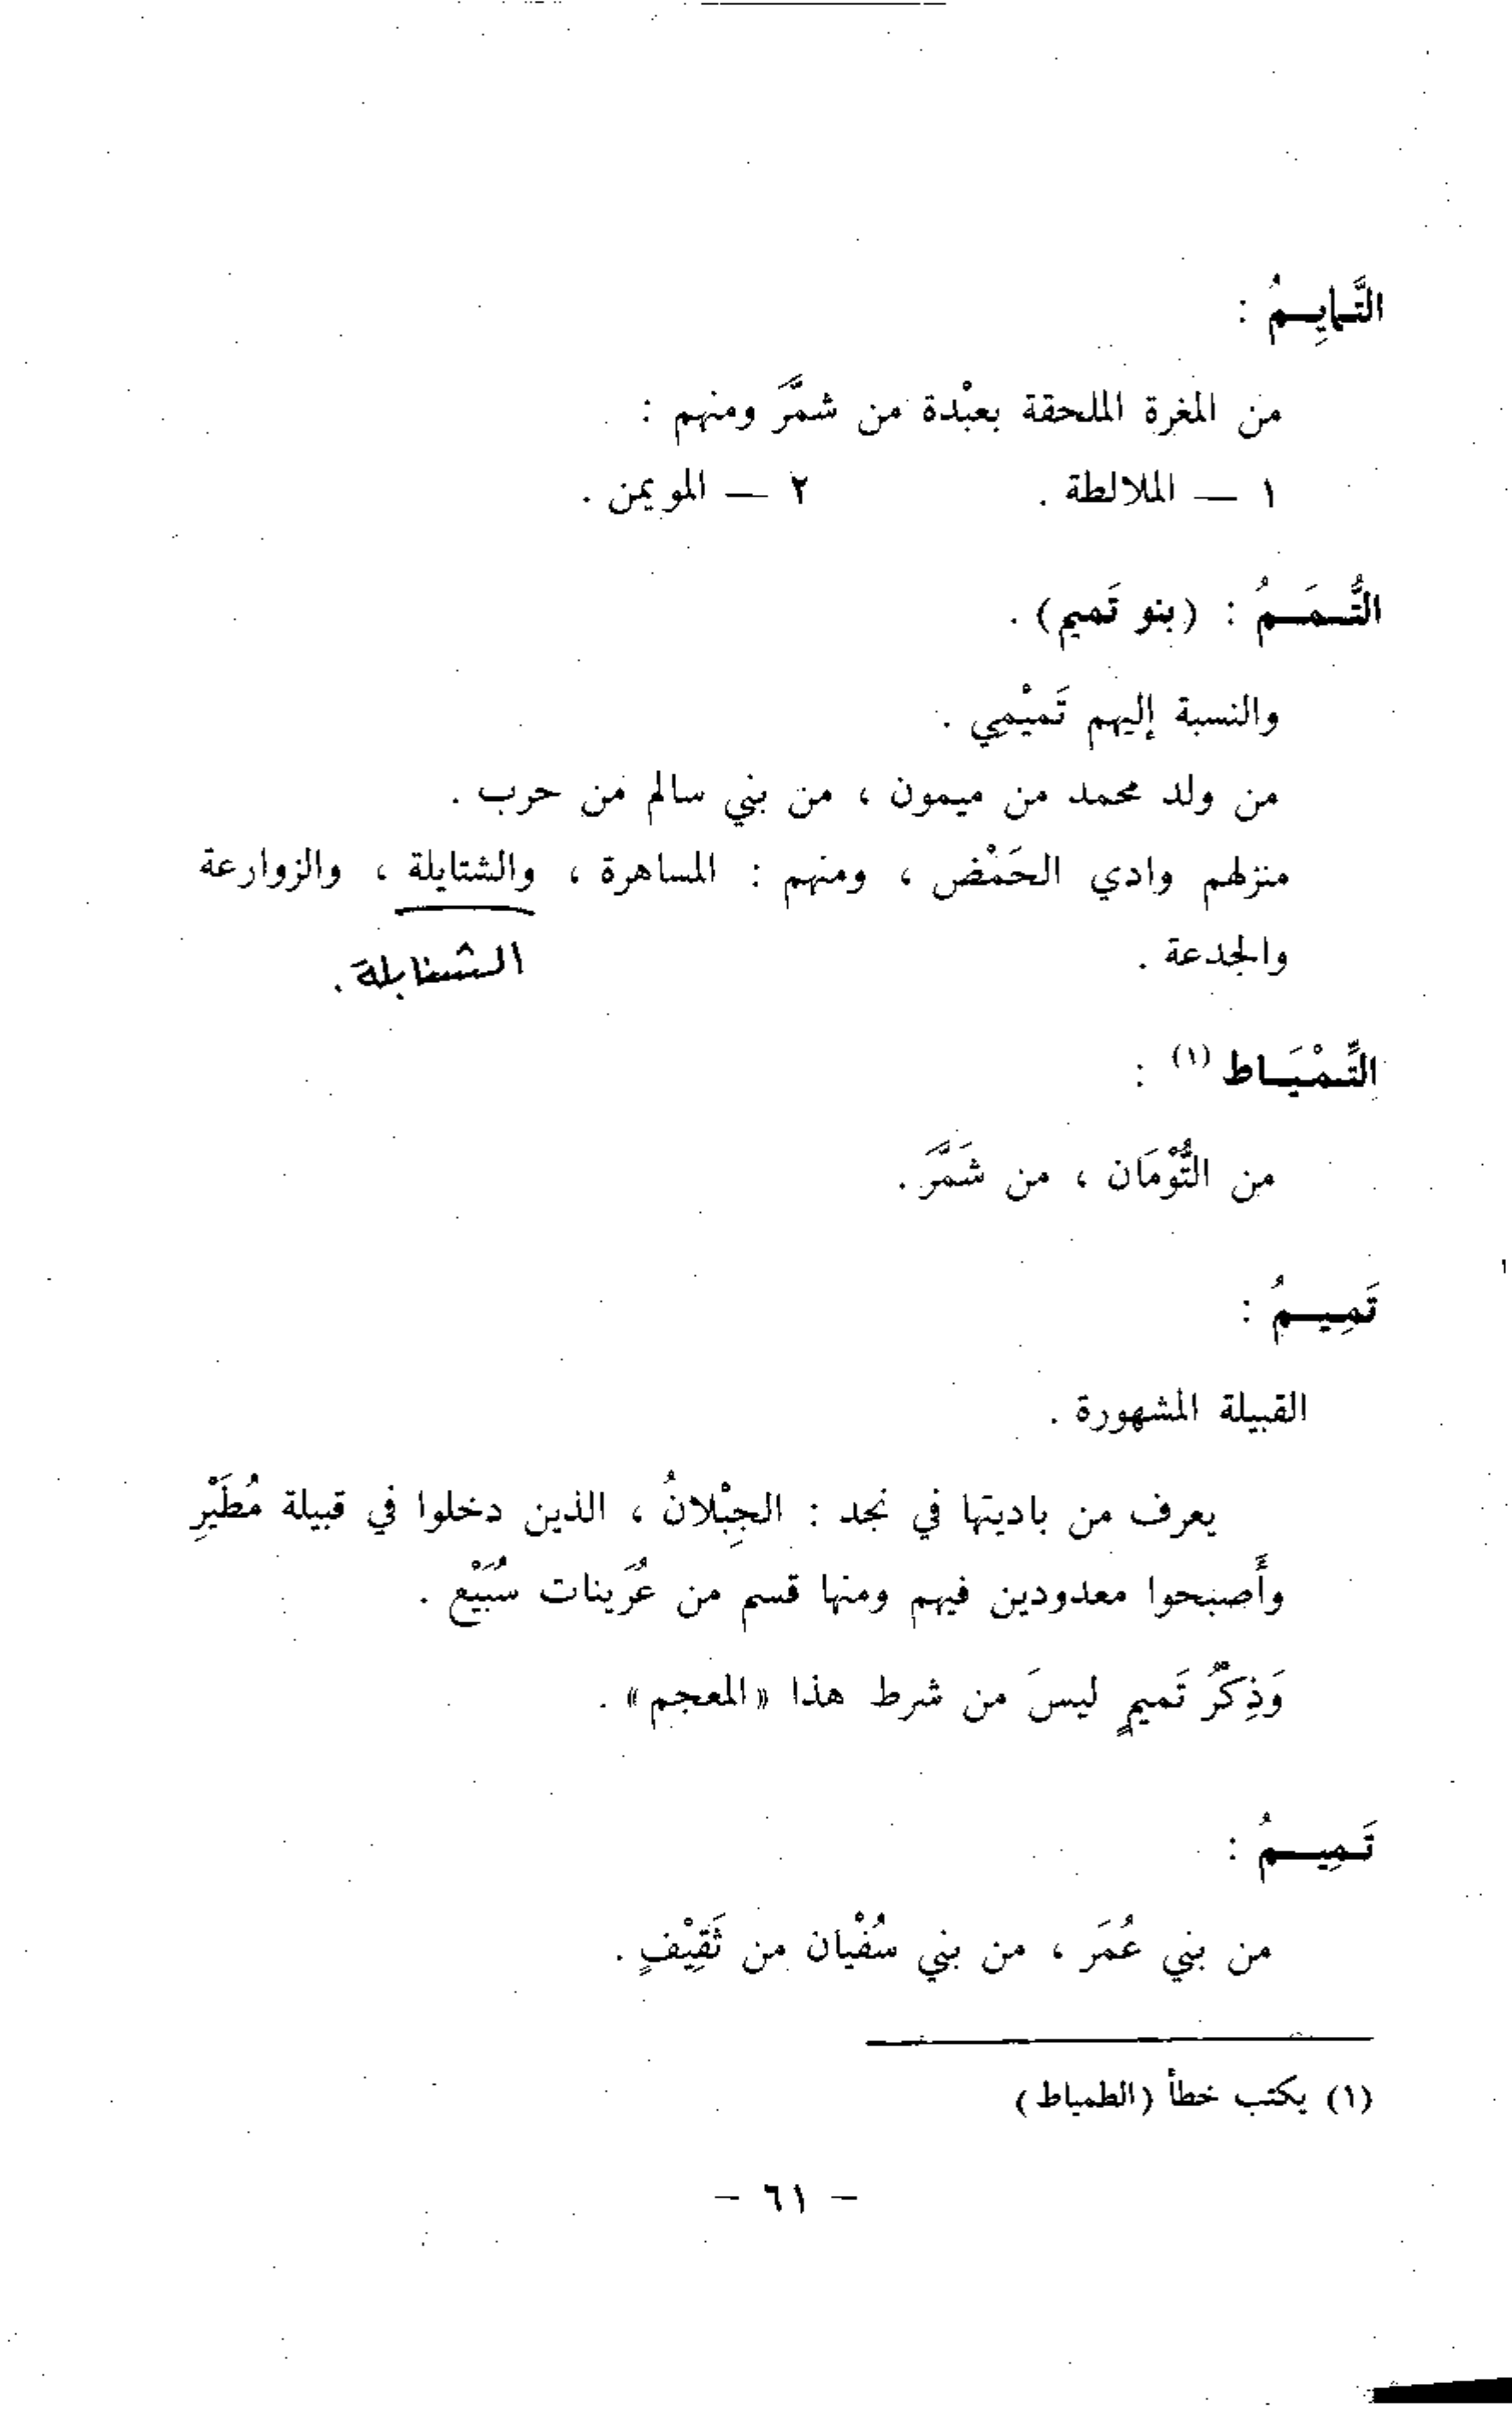 التَّمايِمُ :
من المغرة الملحقة بعبْدة من شمَّرَ ومنهم :
١ — الملالطة . ٢ — المويمن .
التُّمَمُ : (بنو تَميم) .
والنسبة إليهم تَميْمي .
من ولد محمد من ميمون ، من بني سالم من حرب .
منزلهم وادي الحَمْض ، ومنهم : المساهرة ، والشتايلة ، والزوارعة
والجدعة .
الشنابلة .
التِّمْيَاط (١) :
من التُّوْمَان ، من شَمَّرَ .
تَمِيمُ :
القبيلة المشهورة .
يعرف من باديتها في نجد : الجِبْلانُ ، الذين دخلوا في قبيلة مُطَيْرِ
وأَصبحوا معدودين فيهم ومنها قسم من عُرَينات سُبَيْع .
وَذِكْرُ تَميمٍ ليسَ من شرط هذا «المعجم» .
تَمِيمُ :
من بني عُمَر ، من بني سُفْيان من ثَقِيْفٍ .
(١) يكتب خطأ (الطمياط)
– ٦١ –